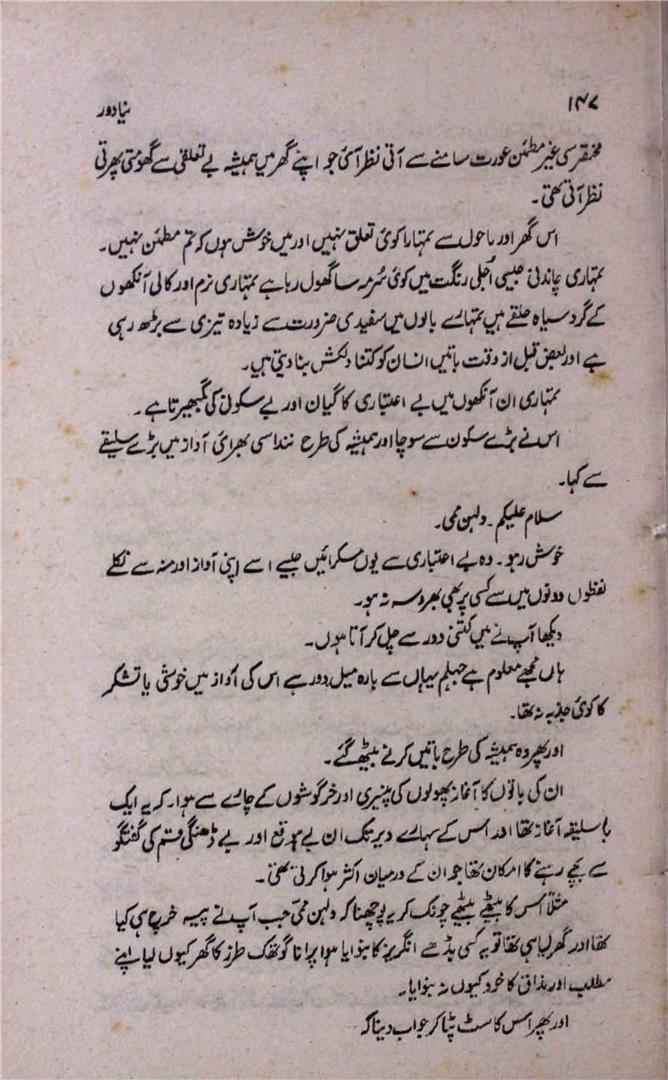 ۱۴۷ نیا دور
مختصر سی غیر مطمئن عورت سامنے سے آتی نظر آئی جو اپنے گھر میں ہمیشہ بے تعلقی سے گھومتی پھرتی
نظر آتی تھی۔
اس گھر اور ماحول سے تمہارا کوئی تعلق نہیں اور میں خوش ہوں کہ تم مطمئن نہیں۔
تمہاری چاندنی جیسی اُجلی رنگت میں کوئی سُرمہ سا گھول رہا ہے تمہاری نرم اور کالی آنکھوں
کے گرد سیاہ حلقے ہیں تمہارے بالوں میں سفیدی ضرورت سے زیادہ تیزی سے بڑھ رہی
ہے اور بعض قبل از وقت باتیں انسان کو کتنا دلکش بنا دیتی ہیں۔
تمہاری ان آنکھوں میں بے اعتباری کا گیان اور بے سکونی کی گمبھیرتا ہے۔
اس نے بڑے سکون سے سوچا اور ہمیشہ کی طرح ننداسی بھرائی آواز میں بڑے سلیقے
سے کہا۔
سلام علیکم۔ دلہن ممی۔
خوش رہو۔ وہ بے اعتباری سے یوں مسکرائیں جیسے اسے اپنی آواز اور منہ سے نکلے
لفظوں دونوں میں سے کسی پر بھی بھروسہ نہ ہو۔
دیکھا آپ نے میں کتنی دور سے چل کر آتا ہوں۔
ہاں مجھے معلوم ہے جہلم یہاں سے بارہ میل دور ہے اس کی آواز میں خوشی یا تشکر
کا کوئی جذبہ نہ تھا۔
اور پھر وہ ہمیشہ کی طرح باتیں کرنے بیٹھ گئے۔
ان کی باتوں کا آغاز پھولوں کی پنیری اور خرگوشوں کے چارے سے ہوا۔ کہ یہ ایک
باسلیقہ آغاز تھا اور اس کے سہارے دیر تک ان بے موقع اور بے ڈھنگی قسم کی گفتگو
سے بچے رہنے کا امکان تھا جو ان کے درمیان اکثر ہوا کرتی تھی۔
مثلاً اس کا بیٹھے بیٹھے چونک کر یہ پوچھنا کہ دلہن ممی جب آپ نے پیسہ خرچ ہی کیا
تھا اور گھر لیا ہی تھا تو یہ کسی بڈھے انگریز کا بنوایا ہوا پرانا گوتھک طرز کا گھر کیوں لیا اپنے
مطلب اور مذاق کا خود کیوں نہ بنوایا۔
اور پھر اس کا سٹ پٹا کر جواب دینا کہ